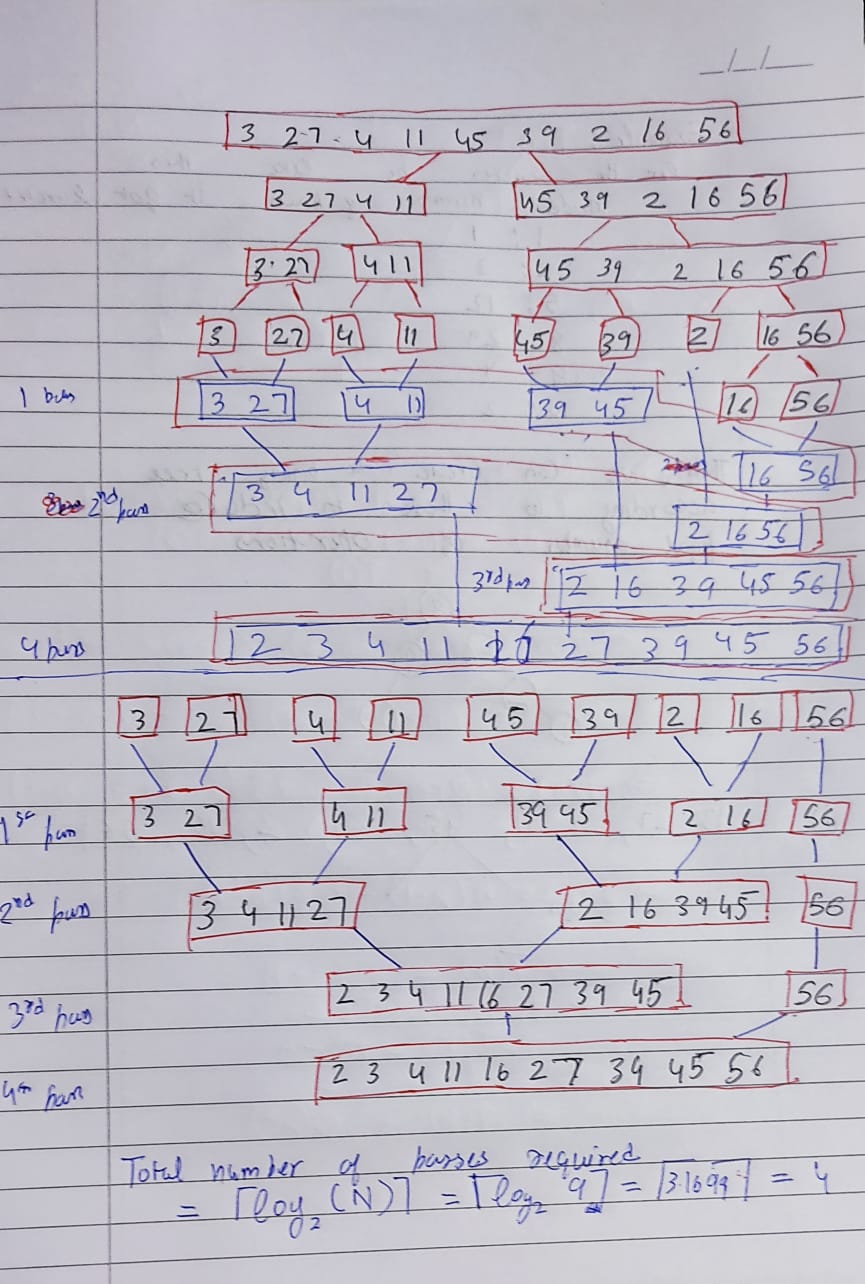 _/_/_
3 27 4 11 45 39 2 16 56
3 27 4 11 45 39 2 16 56
3 27 4 11 45 39 2 16 56
3 27 4 11 45 39 2 16 56
1 pass 3 27 4 11 39 45 16 56
16 56
2nd pass 3 4 11 27
2 16 56
3rd pass 2 16 39 45 56
4 pass 2 3 4 11 16 27 39 45 56
3 27 4 11 45 39 2 16 56
1st pass 3 27 4 11 39 45 2 16 56
2nd pass 3 4 11 27 2 16 39 45 56
3rd pass 2 3 4 11 16 27 39 45 56
4th pass 2 3 4 11 16 27 39 45 56
Total number of passes required
= ⌈log₂(N)⌉ = ⌈log₂ 9⌉ = ⌈3.1699⌉ = 4